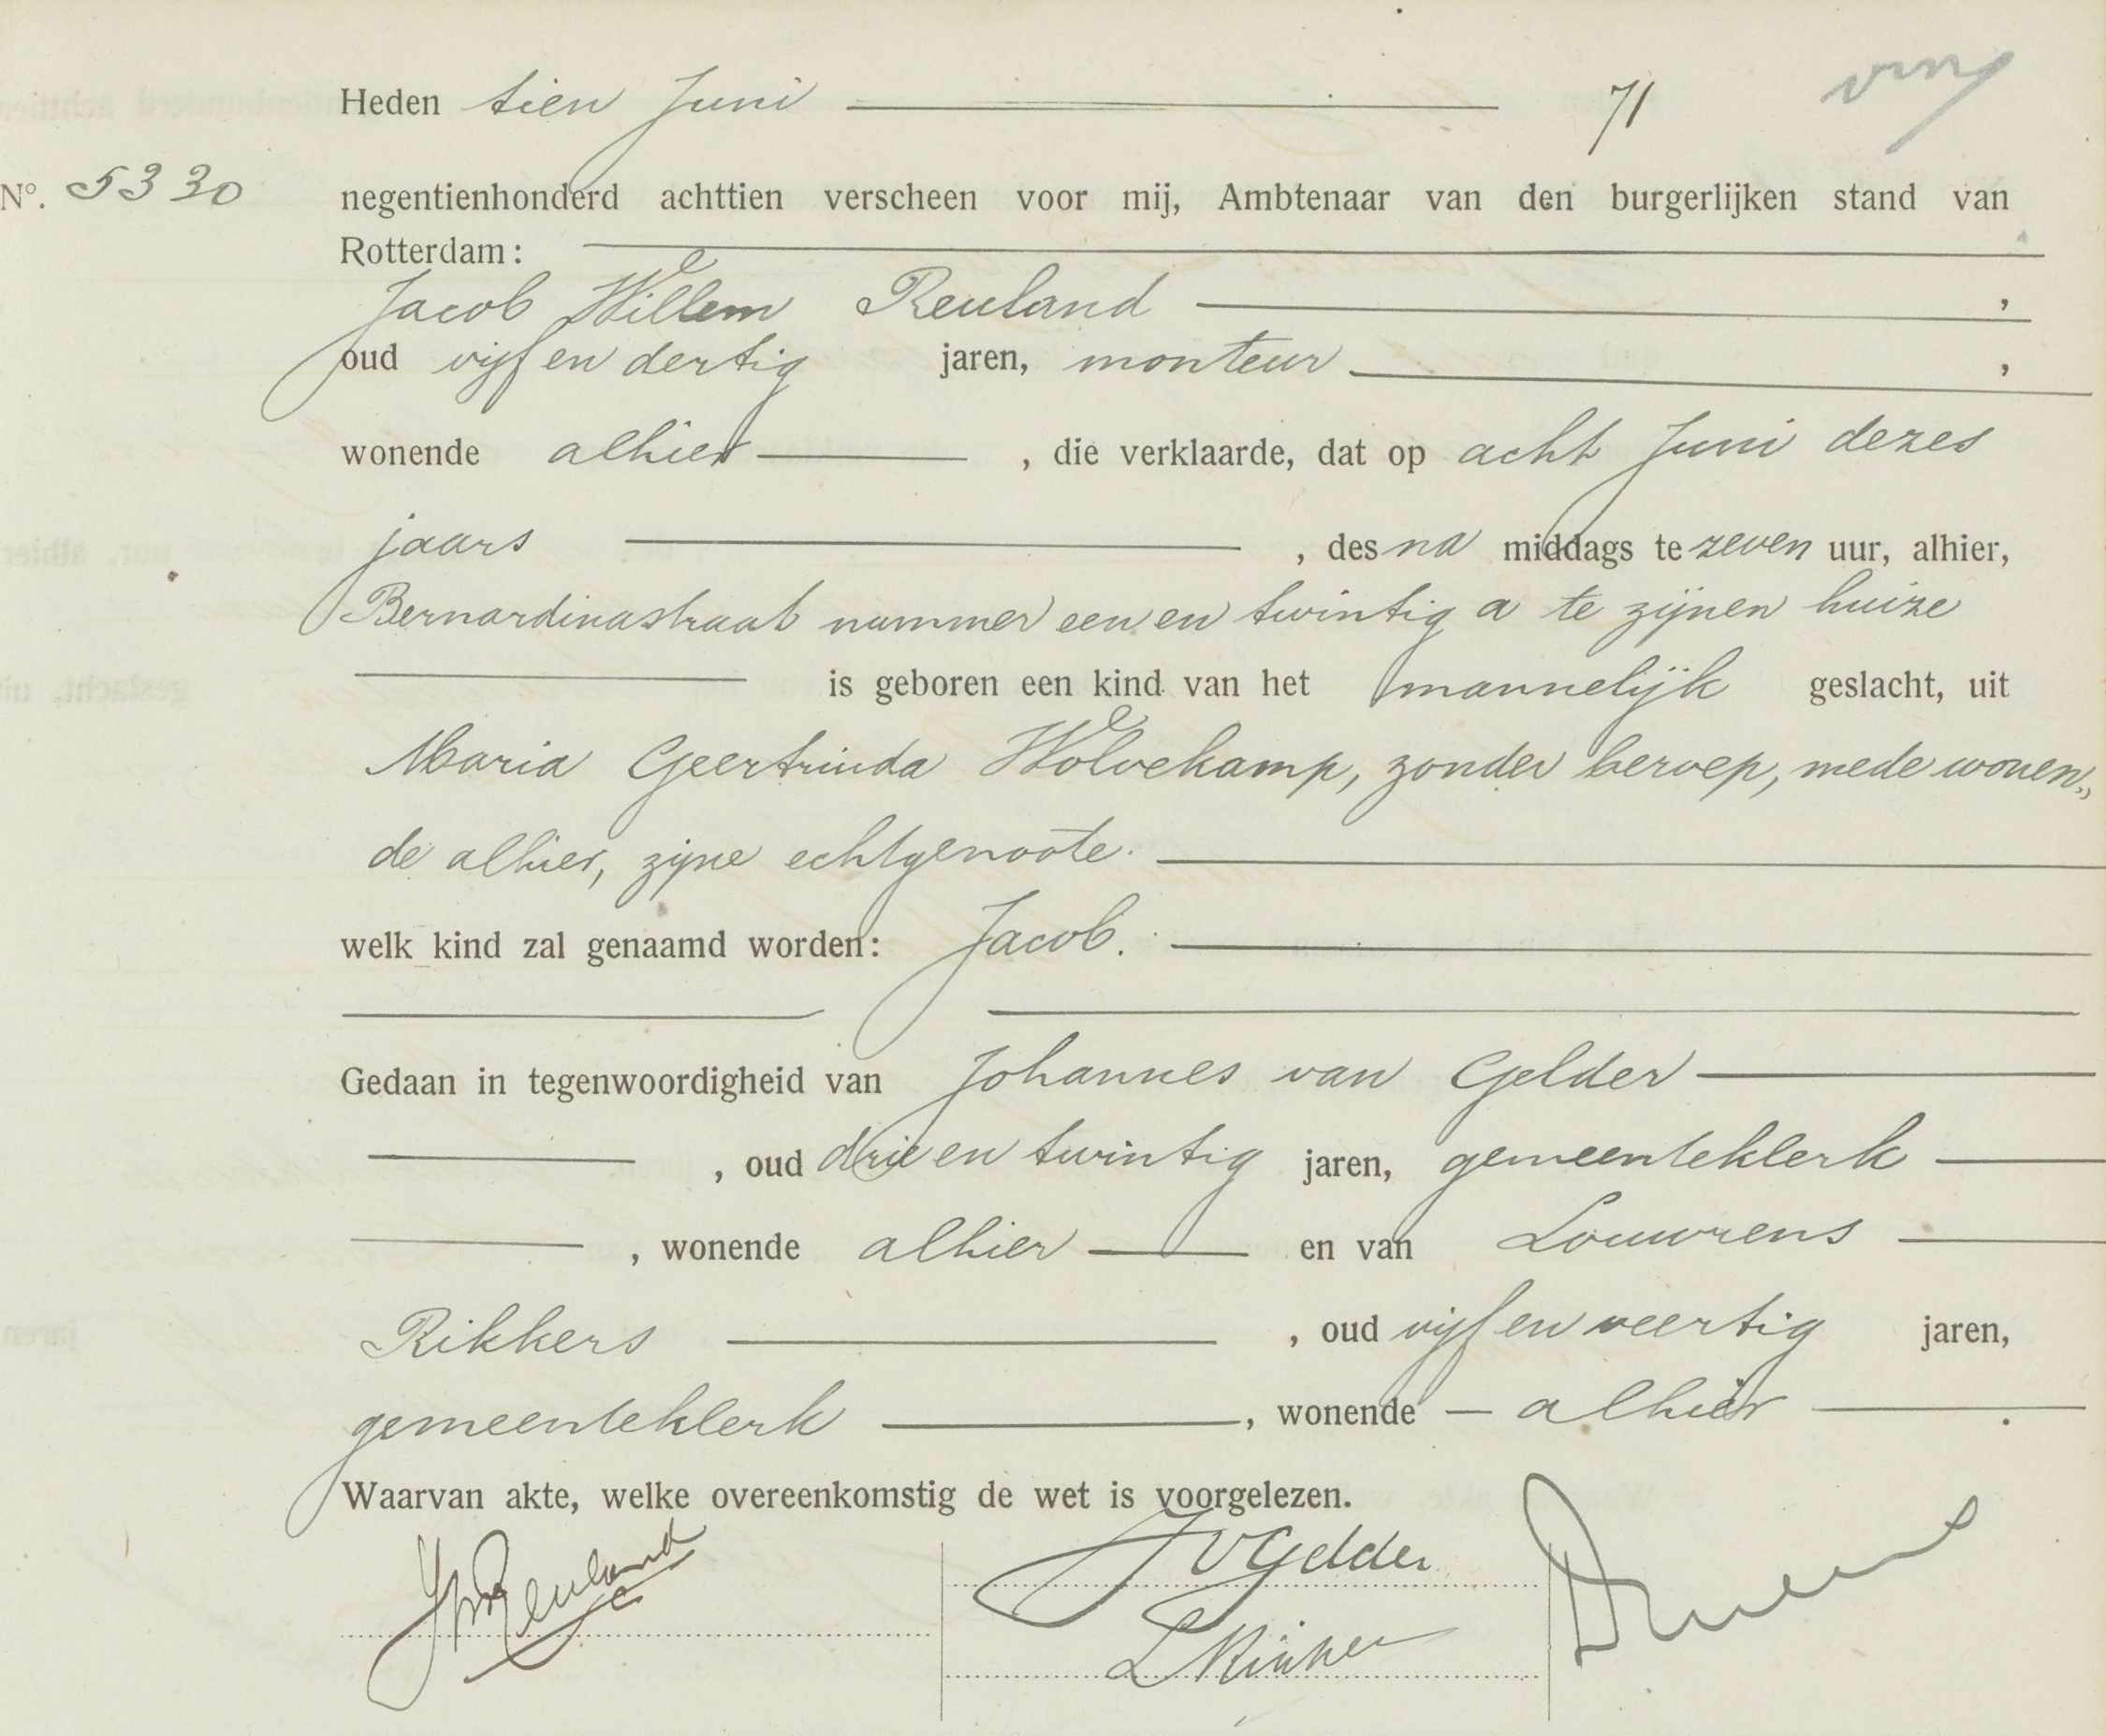 Heden tien Juni 71
Nº. 5330 negentienhonderd achttien verscheen voor mij, Ambtenaar van den burgerlijken stand van
Rotterdam:
Jacob Willem Reuland ,
oud vijf en dertig jaren, monteur ,
wonende alhier , die verklaarde, dat op acht Juni dezes
jaars , des na middags te zeven uur, alhier,
Bernardinastraat nummer een en twintig a te zijnen huize
is geboren een kind van het mannelijk geslacht, uit
Maria Geertruida Wolvekamp, zonder beroep, mede wonen„
de alhier, zijne echtgenoote.
welk kind zal genaamd worden: Jacob.
Gedaan in tegenwoordigheid van Johannes van Gelder
, oud drie en twintig jaren, gemeenteklerk
, wonende alhier en van Louwrens
Rikkers , oud vijf en veertig jaren,
gemeenteklerk , wonende — alhier .
Waarvan akte, welke overeenkomstig de wet is voorgelezen.
JW Reuland
J v Gelder
L Rikkers